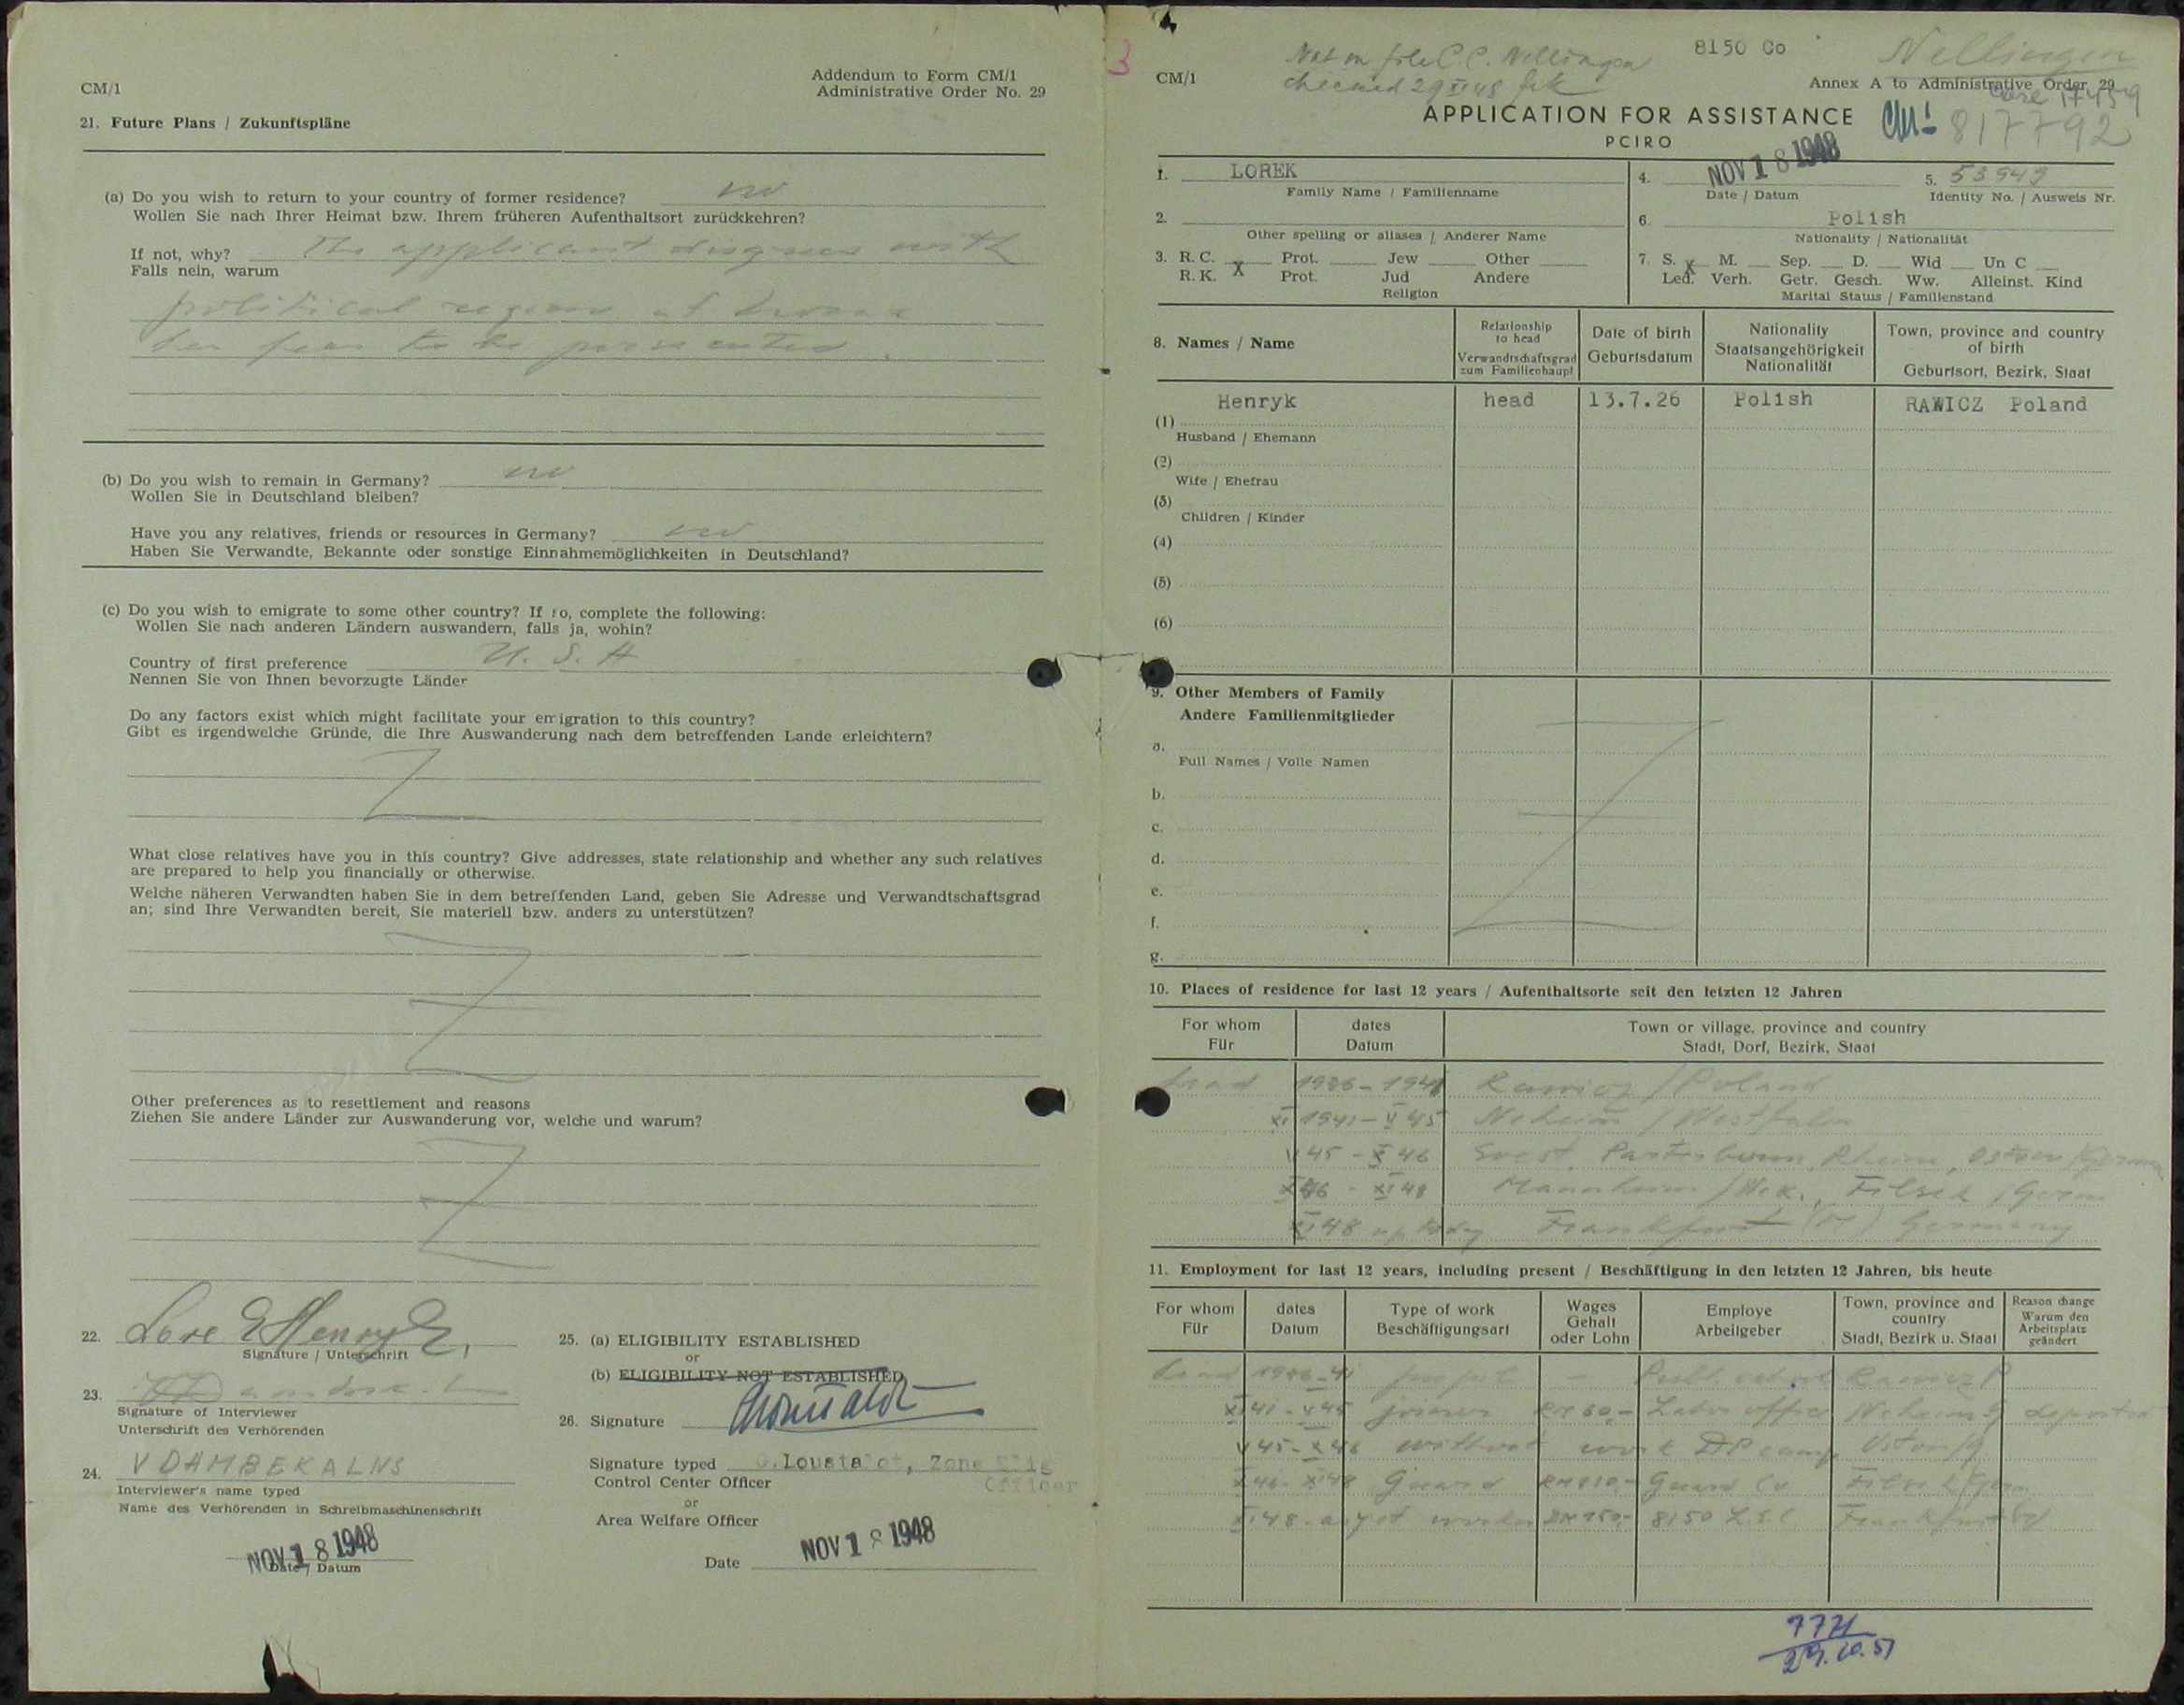 CM/1
Addendum to Form CM/1
Administrative Order No. 29
21. Future Plans / Zukunftspläne
(a) Do you wish to return to your country of former residence? no
Wollen Sie nach Ihrer Heimat bzw. Ihrem früheren Aufenthaltsort zurückkehren?
If not, why? The applicant disgrees with
Falls nein, warum
political regime at
fear to be persecuted.
(b) Do you wish to remain in Germany? no
Wollen Sie in Deutschland bleiben?
Have you any relatives, friends or resources in Germany? no
Haben Sie Verwandte, Bekannte oder sonstige Einnahmemöglichkeiten in Deutschland?
(c) Do you wish to emigrate to some other country? If so, complete the following:
Wollen Sie nach anderen Ländern auswandern, falls ja, wohin?
Country of first preference U. S. A
Nennen Sie von Ihnen bevorzugte Länder
Do any factors exist which might facilitate your emigration to this country?
Gibt es irgendwelche Gründe, die Ihre Auswanderung nach dem betreffenden Lande erleichtern?
What close relatives have you in this country? Give addresses, state relationship and whether any such relatives
are prepared to help you financially or otherwise.
Welche näheren Verwandten haben Sie in dem betreffenden Land, geben Sie Adresse und Verwandtschaftsgrad
an; sind Ihre Verwandten bereit, Sie materiell bzw. anders zu unterstützen?
Other preferences as to resettlement and reasons
Ziehen Sie andere Länder zur Auswanderung vor, welche und warum?
22. Lorek Henryk
Signature / Unterschrift
23.
Signature of Interviewer
Unterschrift des Verhörenden
24. V DAMBEKALNS
Interviewer's name typed
Name des Verhörenden in Schreibmaschinenschrift
NOV 18 1948
Date / Datum
25. (a) ELIGIBILITY ESTABLISHED
or
(b) ELIGIBILITY NOT ESTABLISHED
26. Signature
Signature typed G.Loustalot, Zone Elig
Officer
Control Center Officer
or
Area Welfare Officer
Date NOV 18 1948
3
CM/1
Not on file C.C. Nellingen
checked 29 XI 48
8150 Co
Nellingen
Annex A to Administrative Order 29
Case 17459
APPLICATION FOR ASSISTANCE
PCIRO
CM1 817792
1. LOREK
Family Name / Familienname
2.
Other spelling or aliases / Anderer Name
3. R. C. Prot. Jew Other
R. K. X Prot. Jud Andere
Religion
4. NOV 18 1948
Date / Datum
5. 53949
Identity No. / Ausweis Nr.
6. Polish
Nationality / Nationalität
7. S. X M. Sep. D. Wid Un C
Led. Verh. Getr. Gesch. Ww. Alleinst. Kind
Marital Status / Familienstand
8. Names / Name
Relationship to head
Verwandtschaftsgrad zum Familienhaupt
Date of birth
Geburtsdatum
Nationality
Staatsangehörigkeit
Nationalität
Town, province and country of birth
Geburtsort, Bezirk, Staat
(1) Henryk head 13.7.26 Polish RAWICZ Poland
Husband / Ehemann
(2)
Wife / Ehefrau
(3)
Children / Kinder
(4)
(5)
(6)
9. Other Members of Family
Andere Familienmitglieder
a.
Full Names / Volle Namen
b.
c.
d.
e.
f.
g.
10. Places of residence for last 12 years / Aufenthaltsorte seit den letzten 12 Jahren
For whom
Für
dates
Datum
Town or village, province and country
Stadt, Dorf, Bezirk, Staat
head 1926-1941 Rawicz / Poland
XI 1941 - V 45 Neheim / Westfalen
V 45 - X 46 Soest, Paderborn, Rheine,
X 46 - XI 48 Mannheim
XI 48 up to day Frankfurt (M) Germany
11. Employment for last 12 years, including present / Beschäftigung in den letzten 12 Jahren, bis heute
For whom
Für
dates
Datum
Type of work
Beschäftigungsart
Wages
Gehalt
oder Lohn
Employe
Arbeitgeber
Town, province and country
Stadt, Bezirk u. Staat
Reason change
Warum den Arbeitsplatz geändert
head
XI 41 - V 45 joiner RM 60,- Labor office Neheim
V 45 - X 46 without work DP camp
X 46 - XI 48 Guard Guard Co
XI 48 worker 8150 Frankfurt
29.10.51